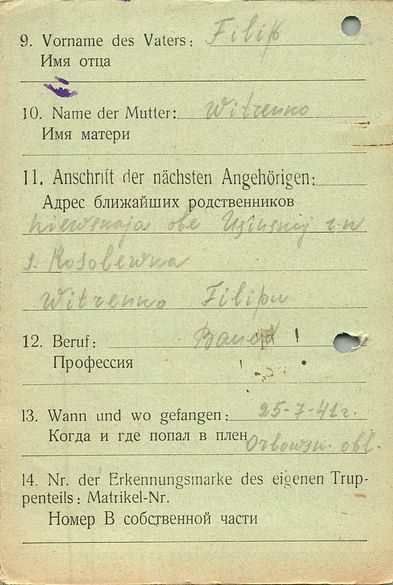 9. Vorname des Vaters: Filip
Имя отца
10. Name der Mutter: Witrenko
Имя матери
11. Anschrift der nächsten Angehörigen:
Адрес ближайших родственников
kiewskaja obl
s.
Witrenko Filipu
12. Beruf:
Профессия
13. Wann und wo gefangen: 25-7-41г.
Когда и где попал в плен Orlowsk. obl.
14. Nr. der Erkennungsmarke des eigenen Trup-
penteils: Matrikel-Nr.
Номер В собственной части